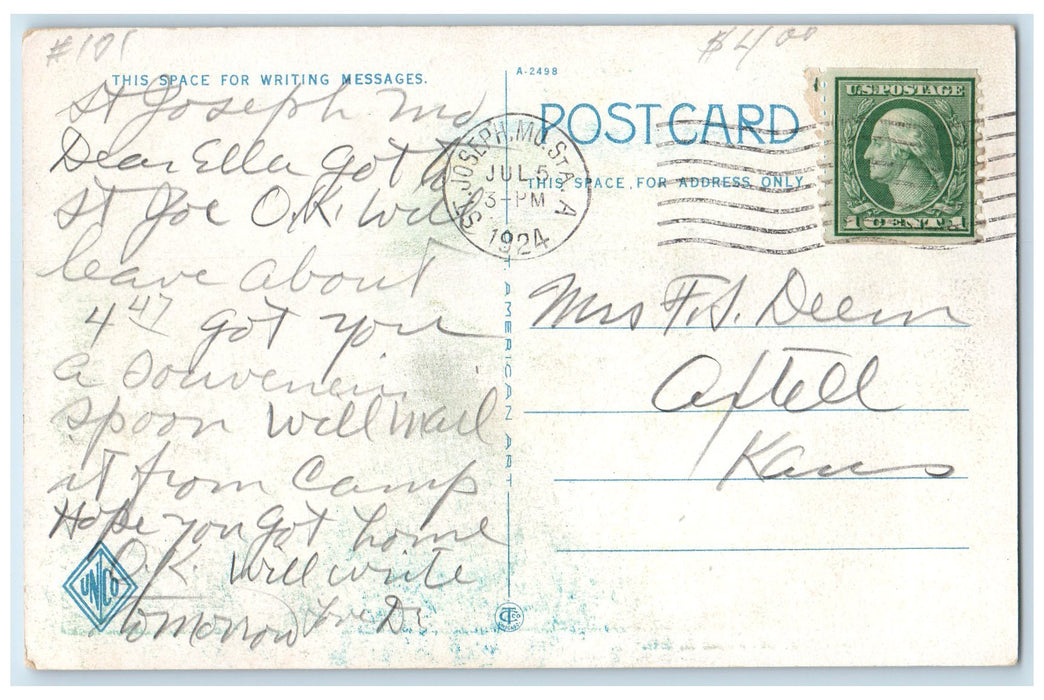 #101
$4 00
THIS SPACE FOR WRITING MESSAGES.
St Joseph Mo
Dear Ella Got to
St Joe O.K. Will
leave about
4 47 got you
a souvenir
spoon Will mail
it from Camp
Hope you got home
O.K. Will write
tomorrow
UNCo
A-2498
POST CARD
THIS SPACE FOR ADDRESS ONLY
ST. JOSEPH, MO. STA. A
JUL 5
3-PM
1924
U.S. POSTAGE
1 CENT 1
AMERICAN ART
Mrs F. S. Deem
Axtell
Kans